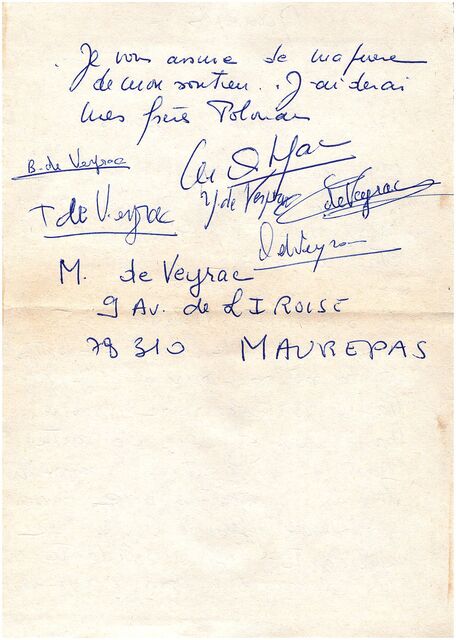 Je vous assure de ma prière
de mon soutien. J'aiderai
mes frères Polonais
B. de Veyrac
Y de Veyrac
de Veyrac
T de Veyrac
D de Veyrac
M. de Veyrac
9 Av. de L'IROISE
78 310 MAUREPAS